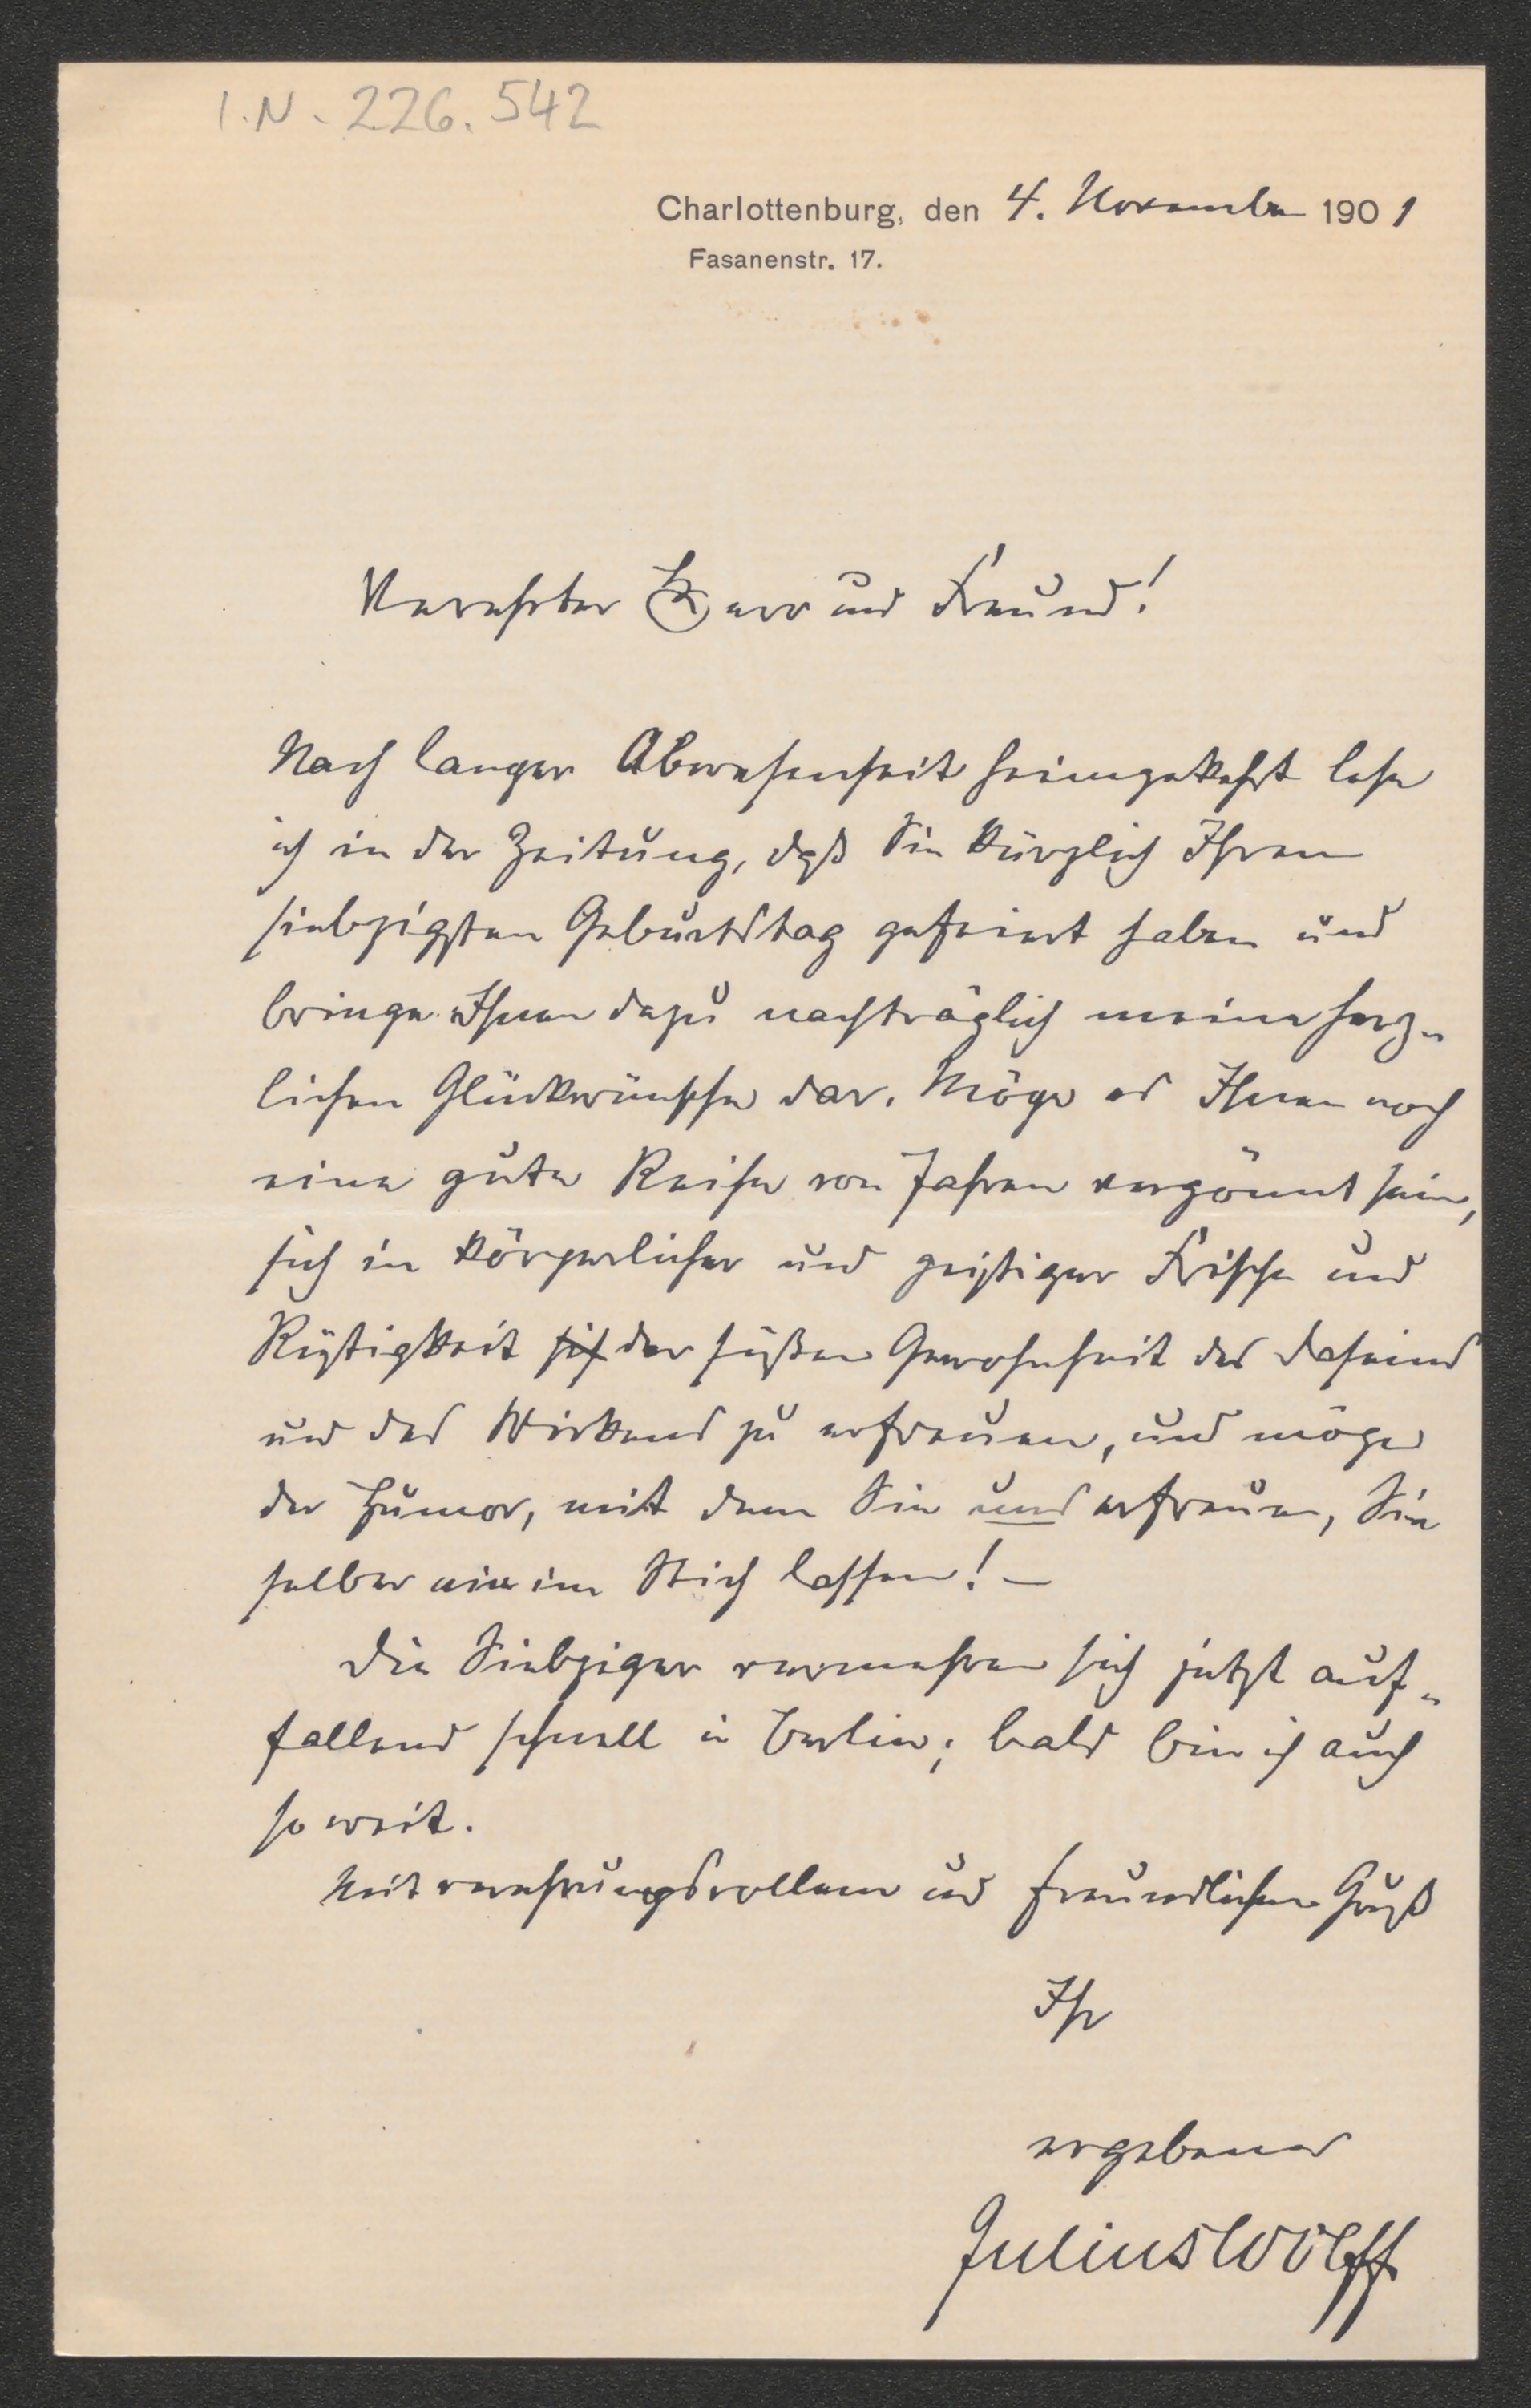 I.N. 226.542
Charlottenburg, den 4. November 1901
Fasanenstr. 17.
Verehrter Herr und Freund!
Nach langer Abwesenheit heimgekehrt lese
ich in der Zeitung, daß Sie kürzlich Ihren
siebzigsten Geburtstag gefeiert haben und
bringe Ihnen dazu nachträglich meine herz-
lichen Glückwünsche dar. Möge es Ihnen noch
eine gute Reihe von Jahren vergönnt sein,
sich in körperlicher und geistiger Frische und
Rüstigkeit sich der süßen Gewohnheit des Daseins
und des Wirkens zu erfreuen, und möge
der Humor, mit dem Sie uns erfreuen, Sie
selber nie im Stich lassen! –
Die Siebziger vermehren sich jetzt auf-
fallend schnell in Berlin; bald bin ich auch
so weit.
Mit verehrungsvollem und freundlichem Gruß
Ihr
ergebener
Julius Wolff